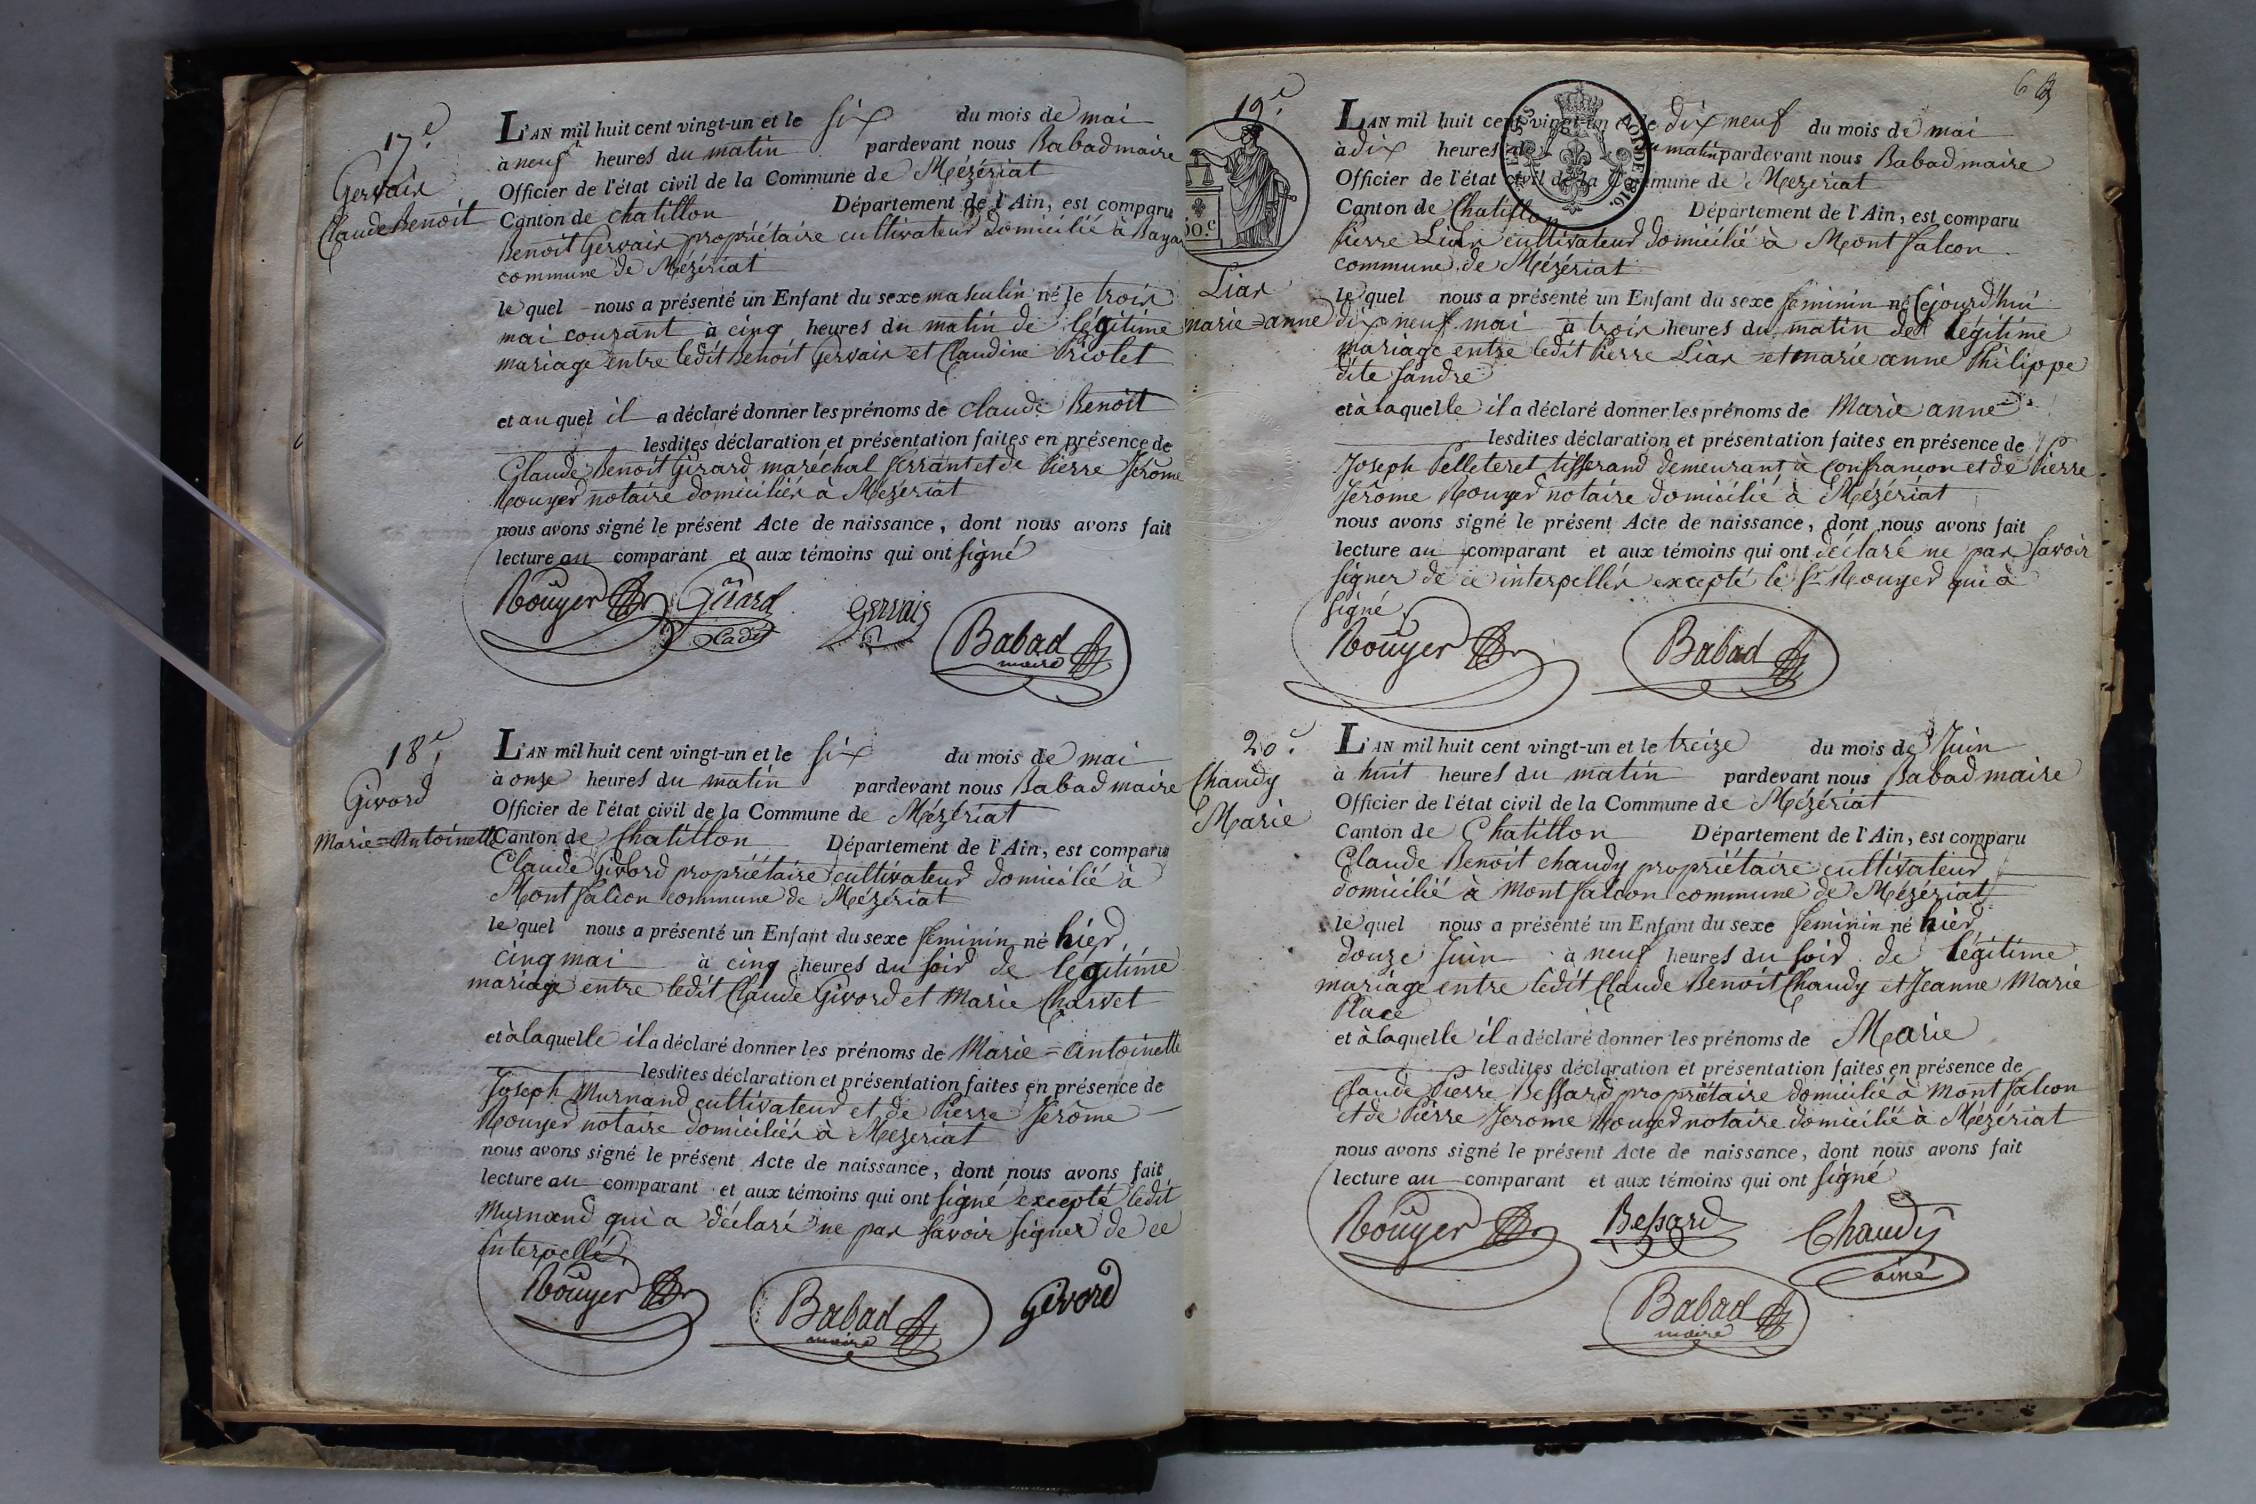 17e
Gervais
Claude Benoit
L'AN mil huit cent vingt-un et le six du mois de mai
à neuf heures du matin pardevant nous Babad maire
Officier de l'état civil de la Commune de Mézériat
Canton de chatillon Département de l'Ain, est comparu
Benoit Gervais propriétaire cultivateur domicilié à
commune de Mézériat
le quel nous a présenté un Enfant du sexe masculin né le trois
mai courant à cinq heures du matin de légitime
mariage entre ledit Benoit Gervais et Claudine Priolet
et au quel il a déclaré donner les prénoms de Claude Benoit
lesdites déclaration et présentation faites en présence de
Claude Benoit Girard maréchal ferrant et de Pierre Jérôme
Rouyer notaire domiciliés à Mézériat
nous avons signé le présent Acte de naissance, dont nous avons fait
lecture au comparant et aux témoins qui ont signé
Rouyer Girard Gervais Babad
cadet maire
18e
Givord
Marie=Antoinette
L'AN mil huit cent vingt-un et le six du mois de mai
à onze heures du matin pardevant nous Babad maire
Officier de l'état civil de la Commune de Mézériat
Canton de Chatillon Département de l'Ain, est comparu
Claude Givord propriétaire cultivateur domicilié à
Montfalcon commune de Mézériat
le quel nous a présenté un Enfant du sexe feminin né hier
cinq mai à cinq heures du soir de légitime
mariage entre ledit Claude Givord et Marie Charvet
et à laquelle il a déclaré donner les prénoms de Marie=Antoinette
lesdites déclaration et présentation faites en présence de
Joseph Murnand cultivateur et de Pierre Jérôme
Rouyer notaire domiciliés à Mezeriat
nous avons signé le présent Acte de naissance, dont nous avons fait
lecture au comparant et aux témoins qui ont signé excepté ledit
Murnand qui a déclaré ne pas savoir signer de ce
interpellé
Rouyer Babad Givord
maire
63
19e
Liar
marie=anne
L'AN mil huit cent vingt-un et le dix neuf du mois de mai
à dix heures du matin pardevant nous Babad maire
Officier de l'état civil de la Commune de Mezeriat
Canton de Chatillon Département de l'Ain, est comparu
Pierre Liar cultivateur domicilié à Mont falcon
commune de Mézériat
le quel nous a présenté un Enfant du sexe feminin né Cejourd'hui
dix neuf mai à trois heures du matin de légitime
mariage entre ledit Pierre Liar et marie anne Philippe
dite fandre
et à laquelle il a déclaré donner les prénoms de Marie anne
lesdites déclaration et présentation faites en présence de
Joseph Pelleteret tisserand demeurant à Confrançon et de Pierre
Jérôme Rouyer notaire domicilié à Mézériat
nous avons signé le présent Acte de naissance, dont nous avons fait
lecture au comparant et aux témoins qui ont déclaré ne pas savoir
signer de ce interpellés excepté le Sr Rouyer qui à
signé
Rouyer Babad
20e
Chaudy
Marie
L'AN mil huit cent vingt-un et le treize du mois de Juin
à huit heures du matin pardevant nous Babad maire
Officier de l'état civil de la Commune de Mézériat
Canton de Chatillon Département de l'Ain, est comparu
Claude Benoit chaudy propriétaire cultivateur
domicilié à Montfalcon commune de Mézériat
le quel nous a présenté un Enfant du sexe feminin né hier
douze Juin à neuf heures du soir de légitime
mariage entre ledit Claude Benoit Chaudy et Jeanne Marie
Place
et à laquelle il a déclaré donner les prénoms de Marie
lesdites déclaration et présentation faites en présence de
Claude Pierre Bessard propriétaire domicilié à Montfalcon
et de Pierre Jerome Rouyer notaire domicilié à Mézériat
nous avons signé le présent Acte de naissance, dont nous avons fait
lecture au comparant et aux témoins qui ont signé
Rouyer Bessard Chaudy
ainé
Babad
maire